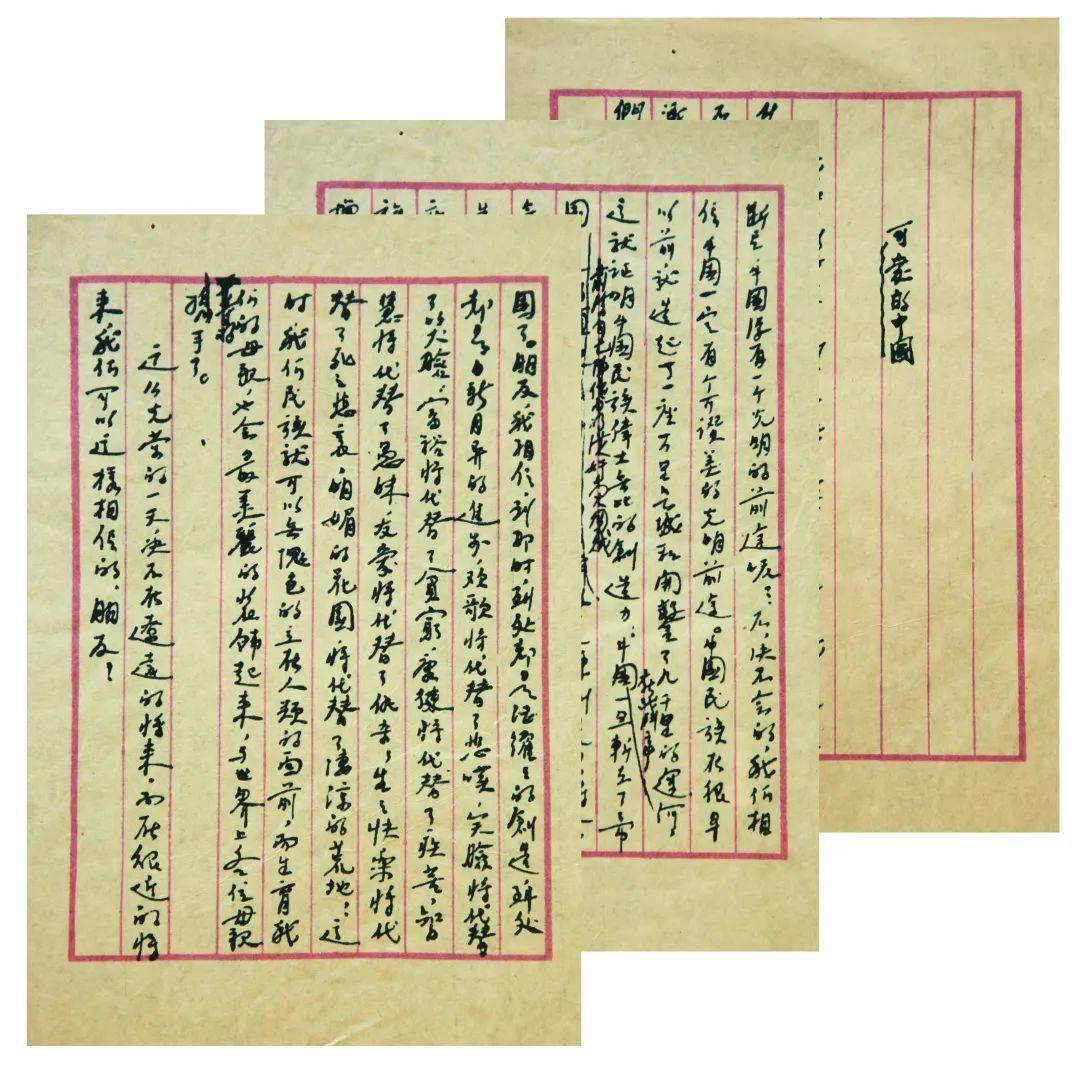 可愛的中國
断言,中國沒有一个光明的前途呢?不,决不会的,我们相
信,中國一定有个可讚美的光明前途。中國民族在很早
以前,就造起了一座万里長城和開鑿了九千里的運河,
这就证明中國民族偉大無比的創造力!中國一旦斬去了帝
國了。朋友,我相信,到那时,到处都是活躍躍的創造,到处
都是日新月異的進步,欢歌将代替了悲嘆,笑臉将代替
了哭臉,富裕将代替了貧窮,康健将代替了疾苦,智
慧将代替了愚昧,友愛将代替了仇杀,生之快樂将代
替了死之悲哀,明媚的花園,将代替了凄凉的荒地!这
时,我们民族就可以無愧色的立在人類的面前,而生育我
们的母親,也会最美麗的裝飾起来,与世界上各位母親
平等的携手了。
这么光荣的一天,决不在遼遠的将来,而在很近的将
来,我们可以这樣相信的,朋友!